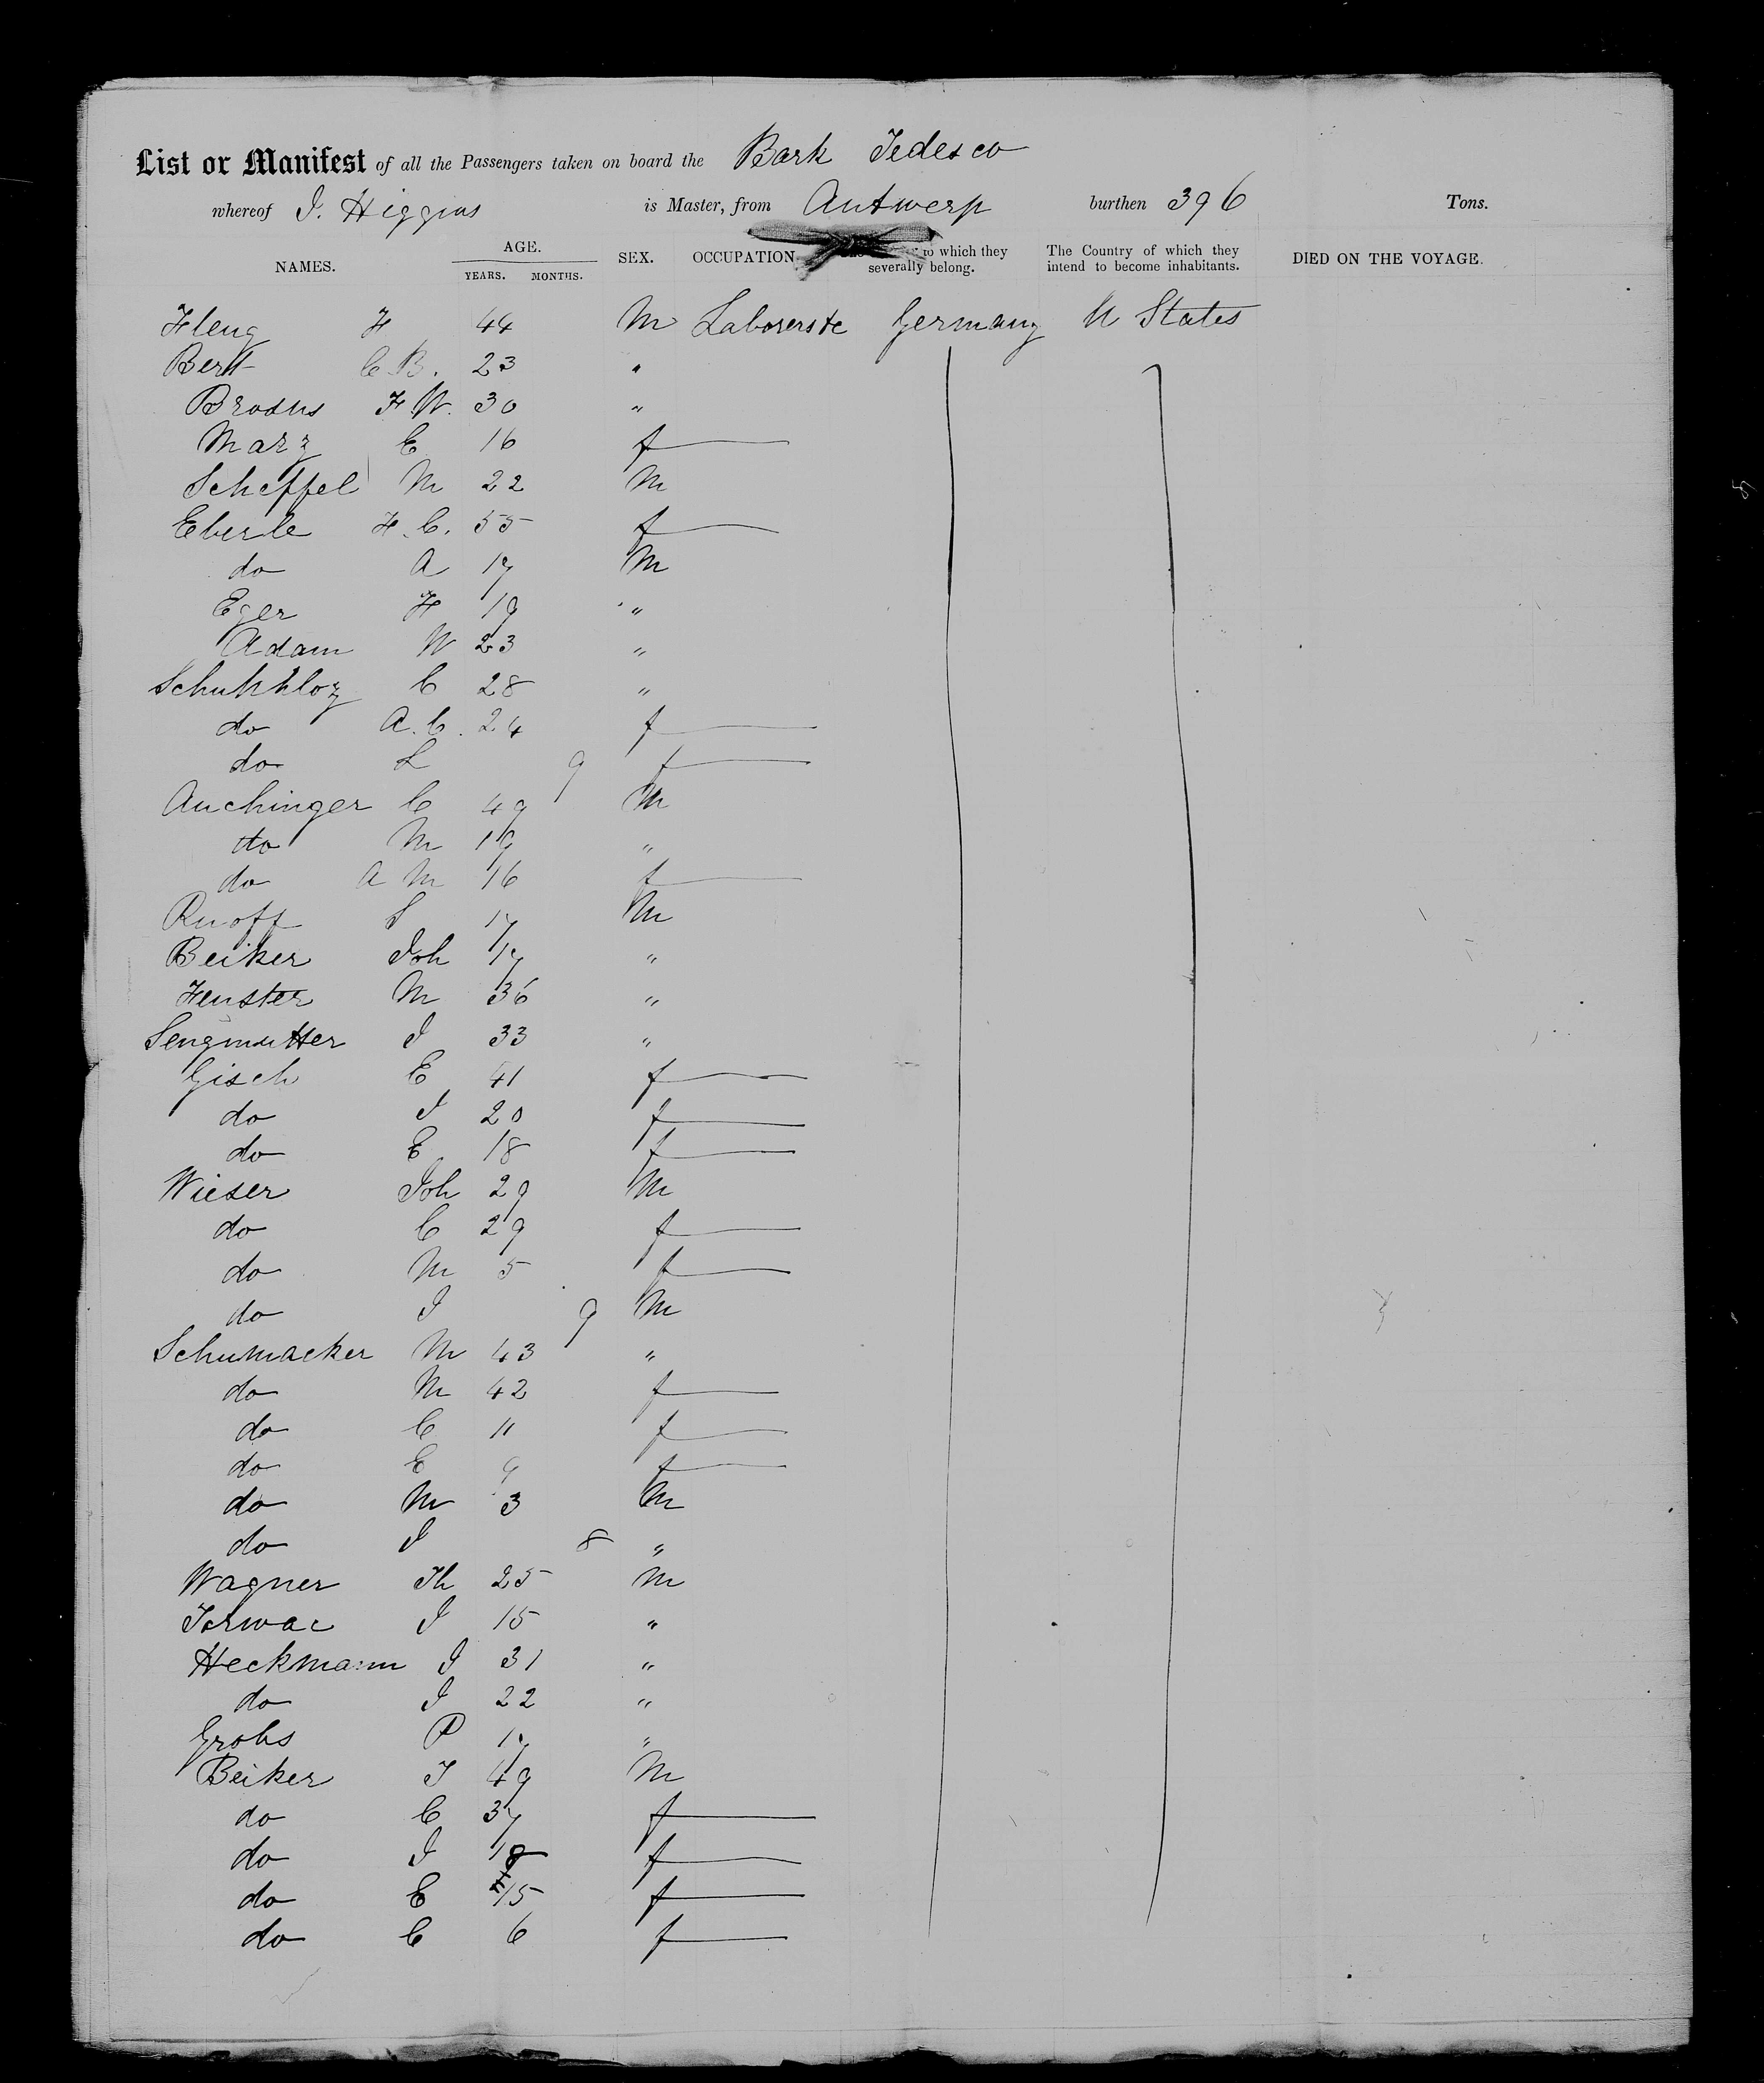 List or Manifest of all the Passengers taken on board the Bark Tedesco
whereof J. Higgins is Master, from Antwerp burthen 396 Tons.
NAMES. AGE. YEARS. MONTHS. SEX. OCCUPATION to which they severally belong. The Country of which they intend to become inhabitants. DIED ON THE VOYAGE.
Fleug F 44 M Laborers &c Germany U States
Bert C B. 23 "
Brodhs F W. 30 "
Marz C 16 f
Scheffel M 22 M
Eberle F. C. 55 f
do A 17 M
Eger F 19 "
Adam W 23 "
Schuhkloz C 28 "
do A. C. 24 f
do L 9 f
Auchinger C 49 M
do M 19 "
do A M 16 f
Ruoff S 17 M
Beiker Joh 17 "
Fenster M 36 "
Sengmutter J 33 "
Gisch E 41 f
do J 20 f
do E 18 f
Wieser Joh 29 M
do C 29 f
do M 5 f
do J 9 M
Schumacker M 43 "
do M 42 f
do C 11 f
do E 9 f
do M 3 M
do J 8 "
Wagner Th 25 M
Torwac J 15 "
Heckmann J 31 "
do J 22 "
Grohs P 17 "
Beiker J 49 M
do C 37 f
do J 18 f
do E 15 f
do C 6 f